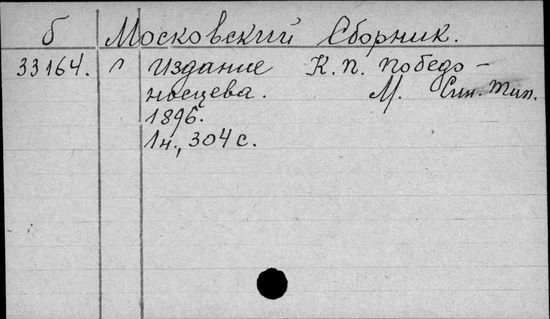 б Московский Сборник.
33164. Издание К. П. Победо-
носцева. М. Син. Тип.
1896.
1н., 304 с.